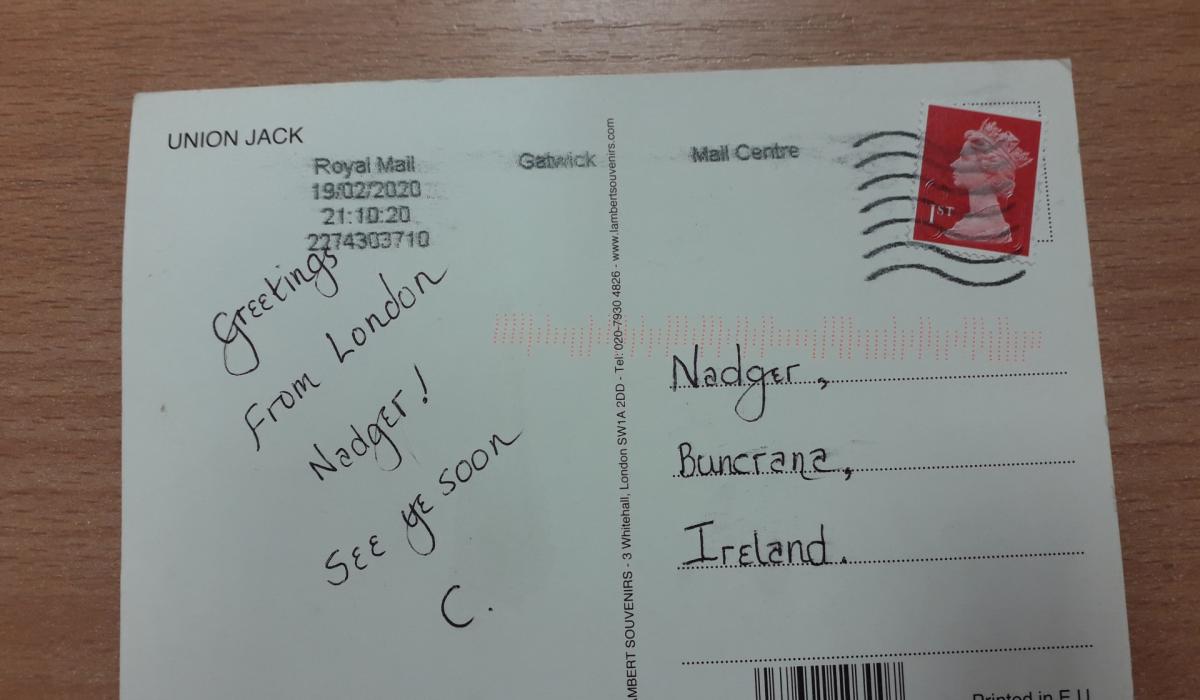 UNION JACK
Royal Mail
19/02/2020
21:10:20
2274303710
Gatwick
Mail Centre
1ST
Greetings
From London
Nadger!
See ye soon
C.
MBERT SOUVENIRS - 3 Whitehall, London SW1A 2DD - Tel: 020-7930 4826 - www.lambertsouvenirs.com
Nadger,
Buncrana,
Ireland.
Printed in E.U